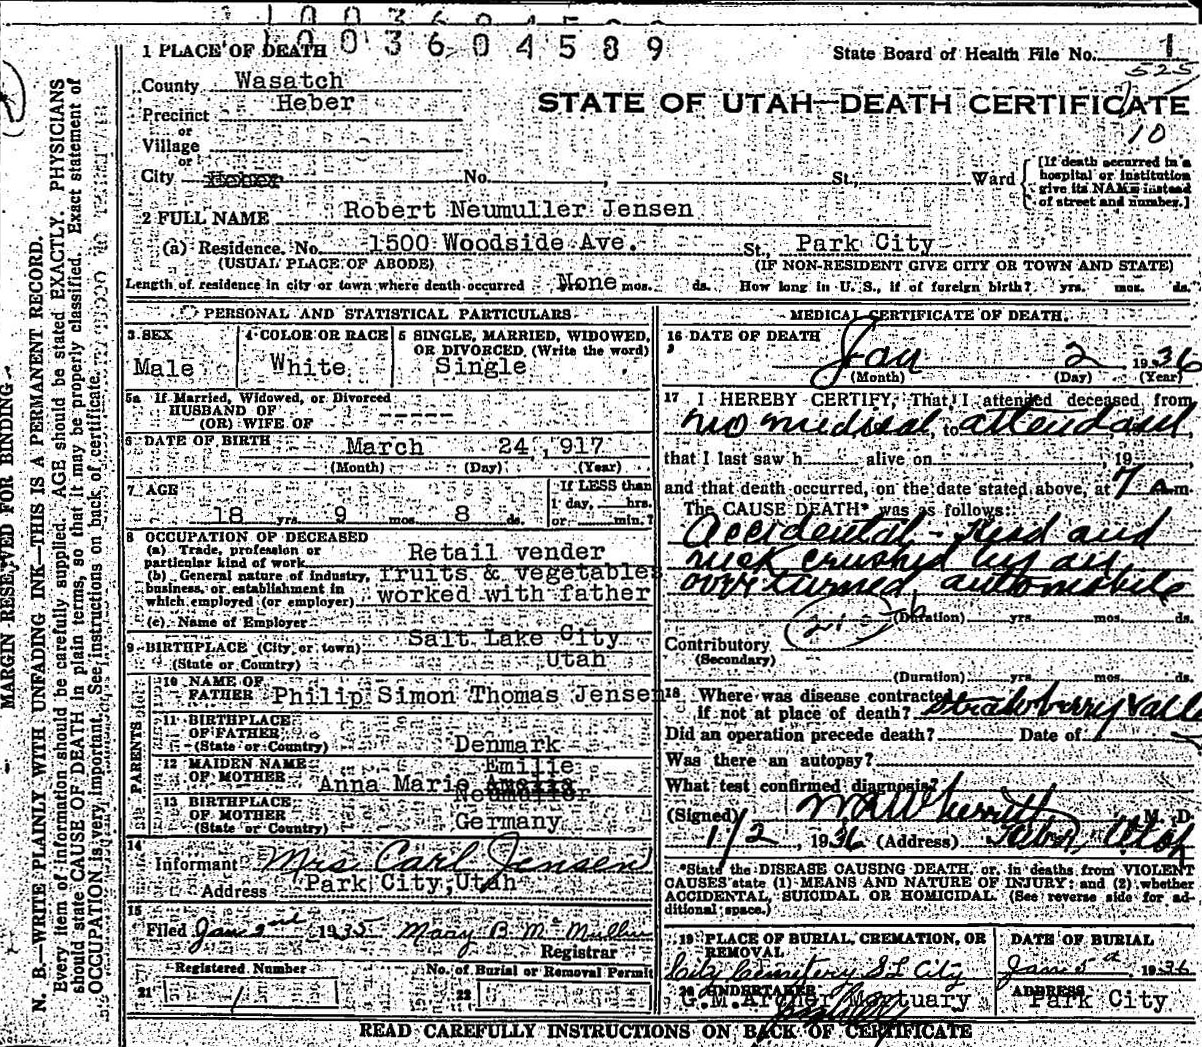 1003604589
1 PLACE OF DEATH
State Board of Health File No. 1
525
County Wasatch
Heber
STATE OF UTAH—DEATH CERTIFICATE
Precinct
or
Village
10
or
City Heber No. , St., Ward
[If death occurred in a
hospital or institution
give its NAME instead
of street and number.]
2 FULL NAME Robert Neumuller Jensen
(a) Residence. No. 1500 Woodside Ave. St., Park City
(USUAL PLACE OF ABODE) (IF NON-RESIDENT GIVE CITY OR TOWN AND STATE)
Length of residence in city or town where death occurred None mos. ds. How long in U. S., if of foreign birth? yrs. mos. ds.
PERSONAL AND STATISTICAL PARTICULARS
3 SEX
Male
4 COLOR OR RACE
White
5 SINGLE, MARRIED, WIDOWED,
OR DIVORCED (Write the word)
Single
5a If Married, Widowed, or Divorced
HUSBAND OF
(OR) WIFE OF -----
6 DATE OF BIRTH March 24, 917
(Month) (Day) (Year)
7 AGE
18 yrs. 9 mos. 8 ds.
If LESS than
1 day, hrs.
or min.?
8 OCCUPATION OF DECEASED
(a) Trade, profession or
particular kind of work Retail vender
(b) General nature of industry,
business, or establishment in
which employed (or employer)
fruits & vegetables
worked with father
(c) Name of Employer
9 BIRTHPLACE (City or town) Salt Lake City
(State or Country) Utah
PARENTS
10 NAME OF
FATHER Philip Simon Thomas Jensen
11 BIRTHPLACE
OF FATHER
(State or Country) Denmark
12 MAIDEN NAME
OF MOTHER Anna Marie Emilie
Neumuller
13 BIRTHPLACE
OF MOTHER
(State or Country) Germany
14
Informant Mrs Carl Jensen
Address Park City, Utah
15
Filed Jan 2nd 1935 Mary B. McMullin
Registrar
Registered Number
21 1
No. of Burial or Removal Permit
22
MEDICAL CERTIFICATE OF DEATH.
16 DATE OF DEATH
Jan 2 1936
(Month) (Day) (Year)
17 I HEREBY CERTIFY, That I attended deceased from
no medical, to attendant,
that I last saw h alive on , 19
and that death occurred, on the date stated above, at 7 a m.
The CAUSE DEATH* was as follows:
Accidental - Head and
neck crushed by an
overturned automobile
210
(Duration) yrs. mos. ds.
Contributory
(Secondary)
(Duration) yrs. mos. ds.
18 Where was disease contracted
if not at place of death? Strawberry Valley
Did an operation precede death? Date of
Was there an autopsy?
What test confirmed diagnosis?
(Signed) M. D.
1/2, 1936 (Address) Heber, Utah
*State the DISEASE CAUSING DEATH, or, in deaths from VIOLENT
CAUSES state (1) MEANS AND NATURE OF INJURY; and (2) whether
ACCIDENTAL, SUICIDAL OR HOMICIDAL. (See reverse side for ad-
ditional space.)
19 PLACE OF BURIAL, CREMATION, OR
REMOVAL
City Cemetery S L City
DATE OF BURIAL
Jan 5th, 1936
20 UNDERTAKER
G.M. Archer Mortuary
ADDRESS
Park City
READ CAREFULLY INSTRUCTIONS ON BACK OF CERTIFICATE
MARGIN RESERVED FOR BINDING
N. B.—WRITE PLAINLY WITH UNFADING INK—THIS IS A PERMANENT RECORD.
Every item of information should be carefully supplied. AGE should be stated EXACTLY. PHYSICIANS
should state CAUSE OF DEATH in plain terms, so that it may be properly classified. Exact statement of
OCCUPATION is very important. See instructions on back of certificate.